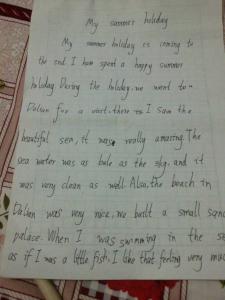 My summer holiday
My summer holiday is coming to
the end. I have spent a happy summer
holiday. During the holiday, we went to
Dalian for a visit. there is I saw the
beautiful sea, it was really amazing. The
sea water was as bule as the sky, and it
was very clean as well. Also, the beach in
Dalian was very nice, we built a small sand
palace. When I was swimming in the se
as if I was a little fish, I like that feeling very muc